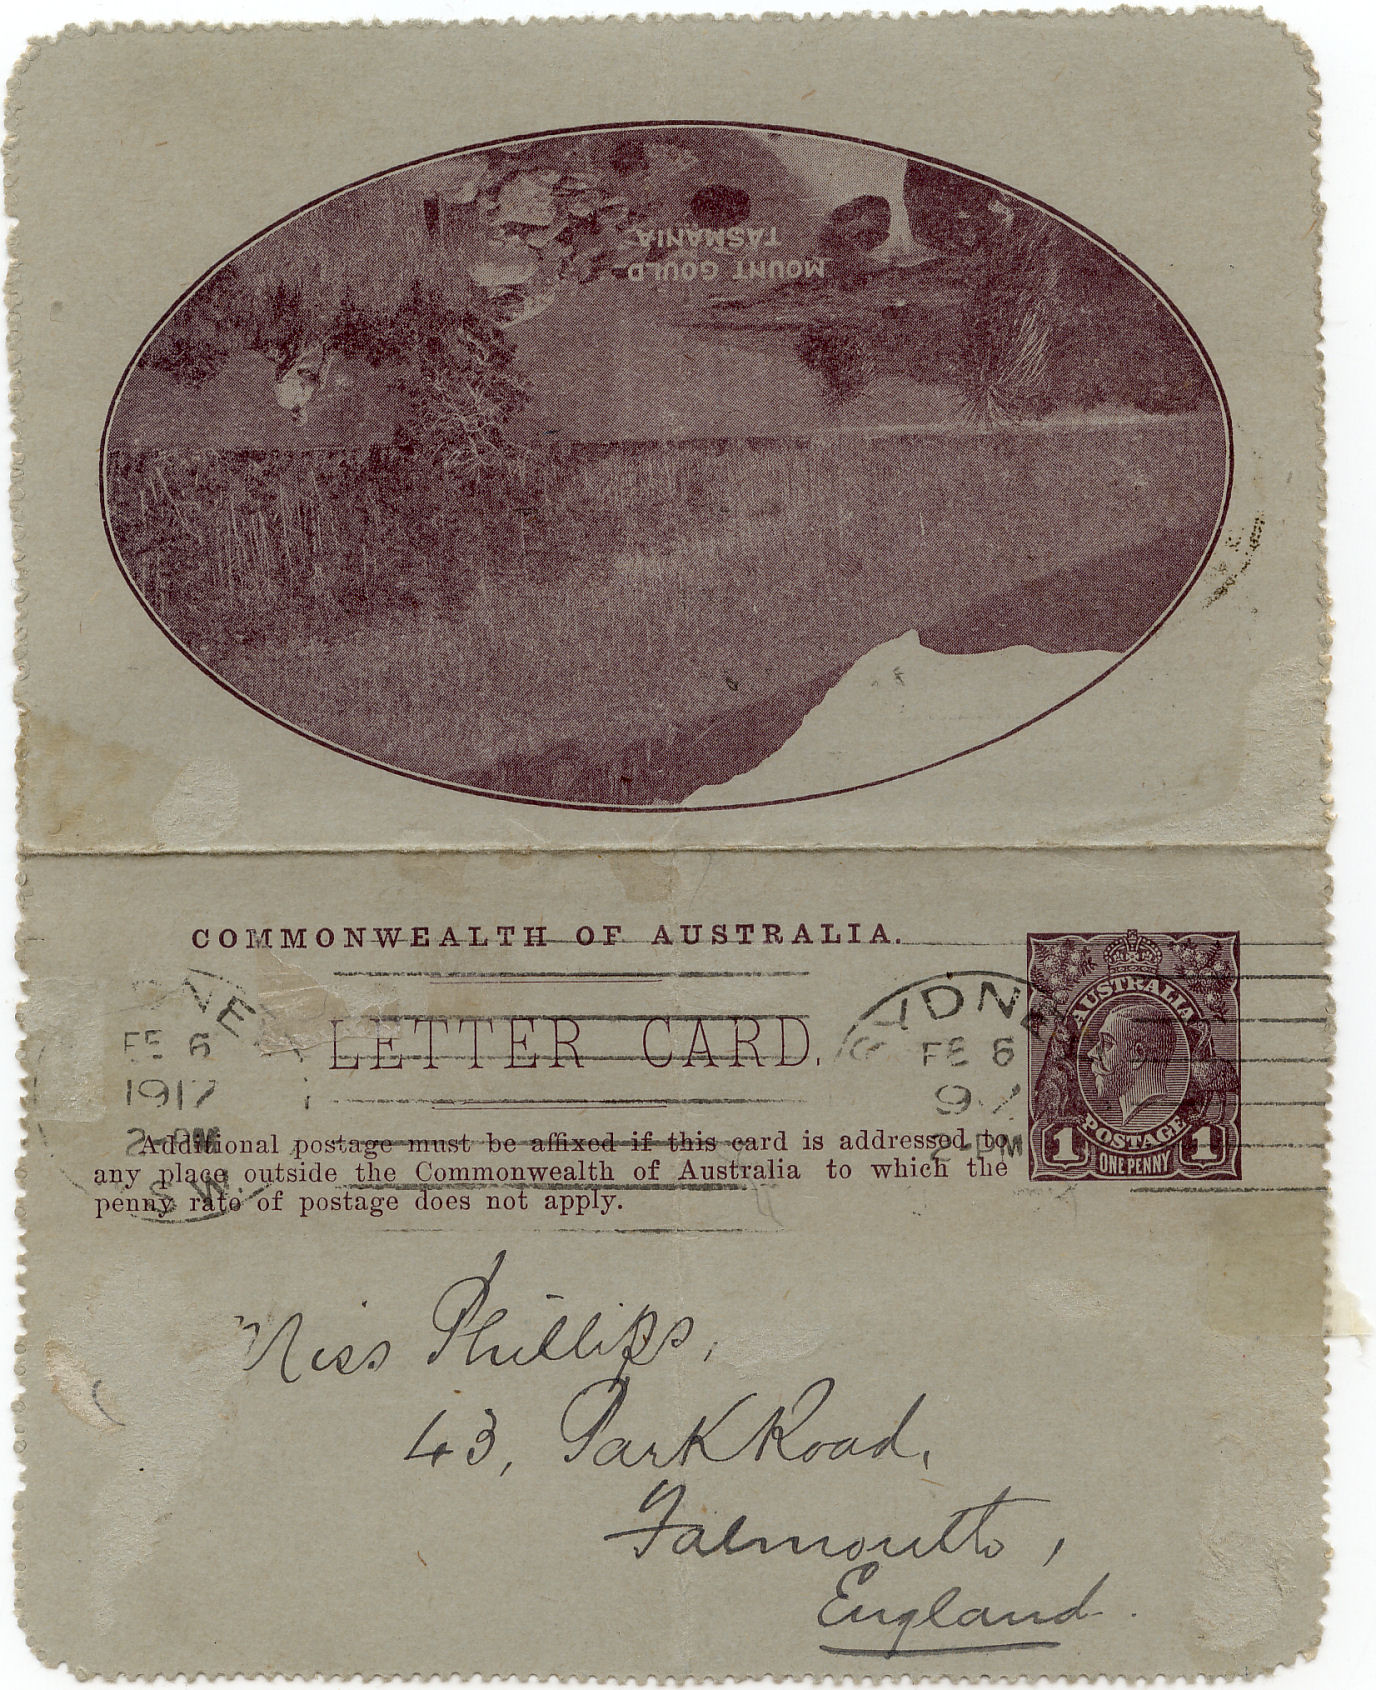 MOUNT GOULD
TASMANIA
COMMONWEALTH OF AUSTRALIA.
LETTER CARD.
Additional postage must be affixed if this card is addressed to
any place outside the Commonwealth of Australia to which the
penny rate of postage does not apply.
AUSTRALIA
POSTAGE
1 ONE PENNY 1
FE 6
1917
2-PM
SYDNEY
FE 6
2-PM
Miss Phillips,
43, Park Road,
Falmouth,
England.